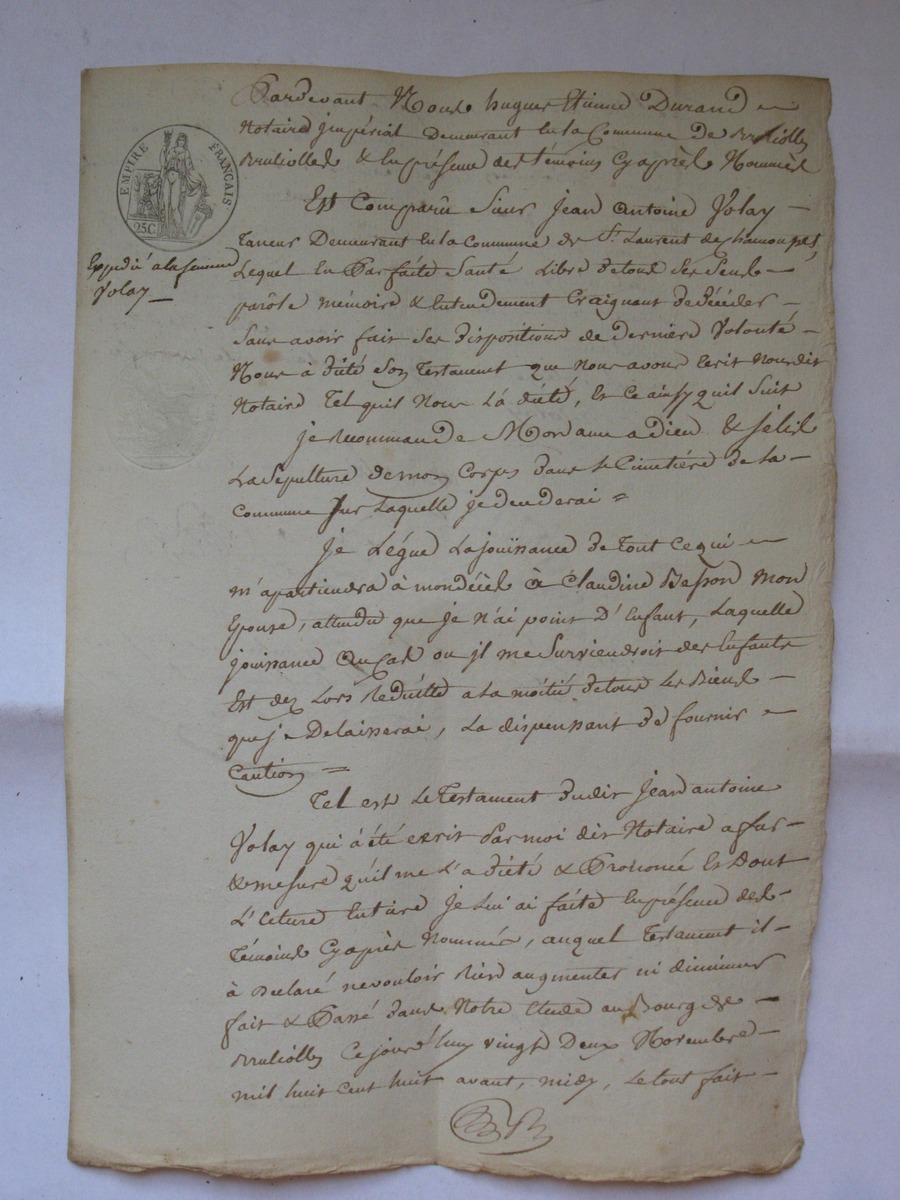 Pardevant Nous hugues Etienne Durand
Notaire jmpérial Demeurant En la Commune de Brulliolles
Brulliolles & En présence des témoins Cy après Nommés
EMPIRE FRANÇAIS
25C
Expedié a la femme
Volay
Est Comparu Sieur Jean Antoine Volay
Taneur Demeurant En la Commune de St. Laurent de Chamousset,
Lequel En Parfaite Santé Libre de tous Ses Sens
parôle mémoire & Entendement Craignant De décéder
Sans avoir fait Ses dispositions de Derniere Volonté
Nous à dicté Son Testament que Nous avons Ecrit Nous dit
Notaire Tel quil Nous L'à dicté, Et Ce ainsy quil Suit
je recommande Mon ame a Dieu & jélis
La Sepulture de mon Corps dans le Cimetière de la
Commune Sur Laquelle je décederai =
Je Légue La jouissance de tout Ce qui
m'apartiendra à mon décès à Claudine Basson Mon
Epouse, attendu que je n'ai point D'Enfant, Laquelle
jouissance Au Cas ou jl me Surviendroit des Enfants
Est dez Lors Reduitte a la moitié de tous Les Biens
que je Delaisserai, La dispensant de fournir
Caution =
Tel est Le Testament dudit Jean antoine
Volay qui à été ecrit Par moi dit Notaire a fur
& mesure qu'il me L'a dicté & Prononcé Et dont
L'Ecture Entiere je Lui ai faite En présence des
Témoins Cy après Nommés, auquel Testament il
à Declaré ne vouloir Rien augmenter ni diminuer
fait & Passé dans Notre Etude au Bourg de
Brulliolles Ce jourd'huy vingt Deux Novembre
mil huit Cent huit avant, midy, Le tout fait